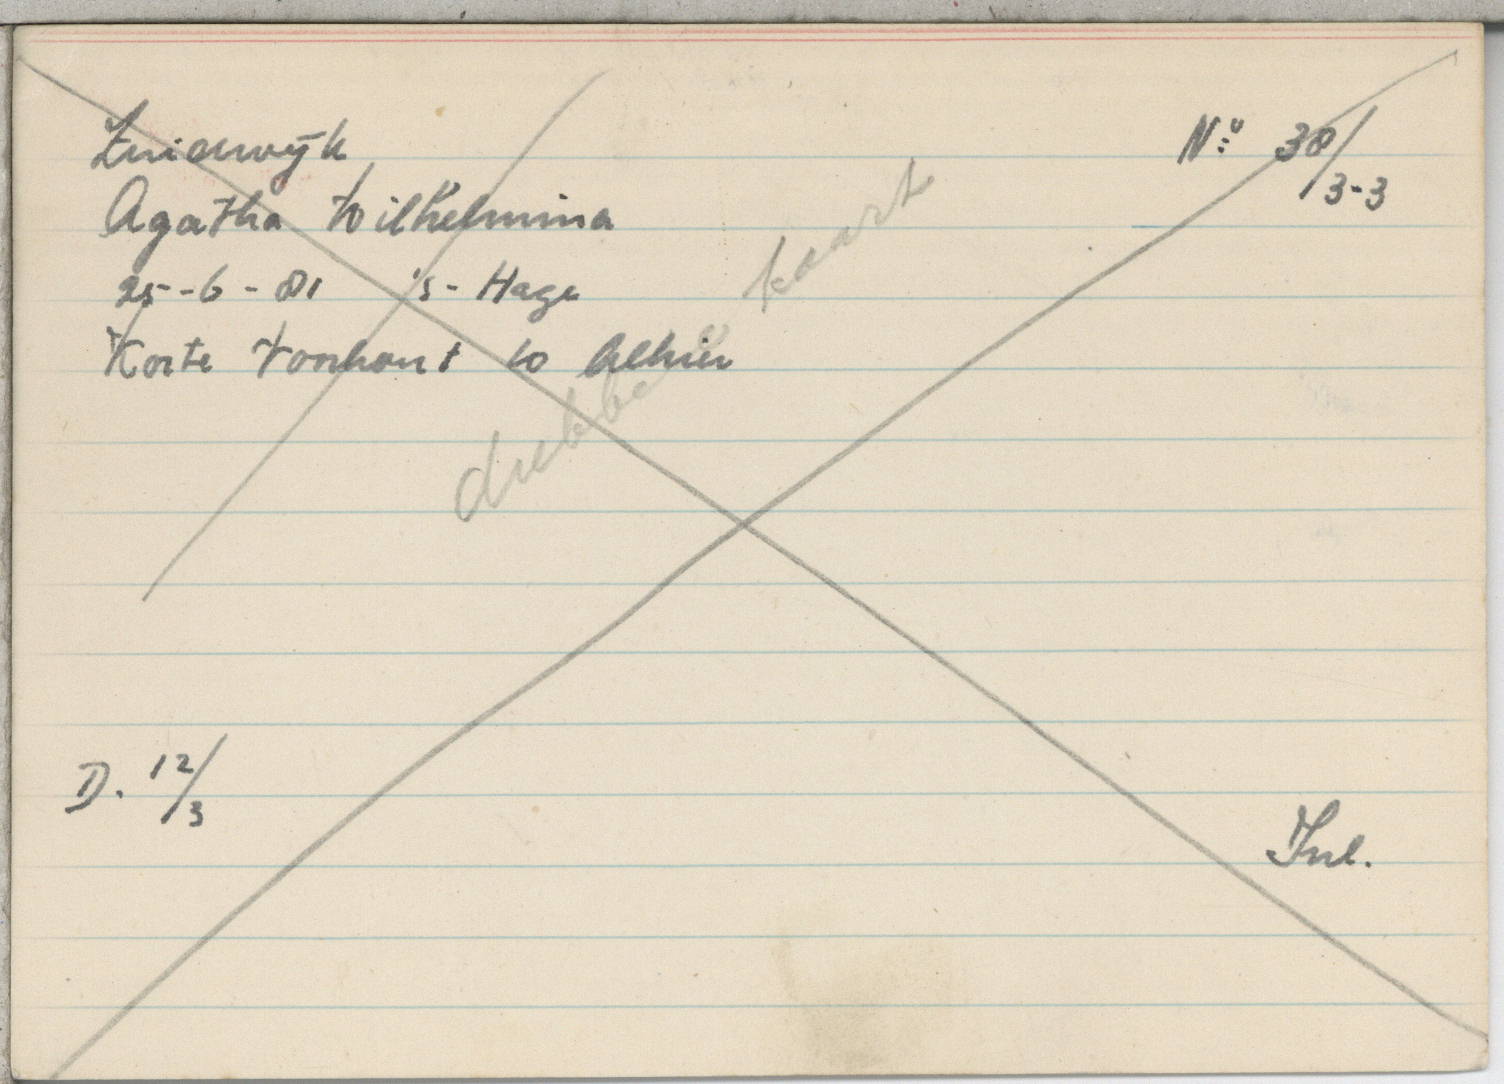 Zuiderwijk
Nº: 38/3-3
Agatha Wilhelmina
25-6-81 's-Hage
Korte Voorhout 10 Alhier
dubbele kaart
D. 12/3
Inl.